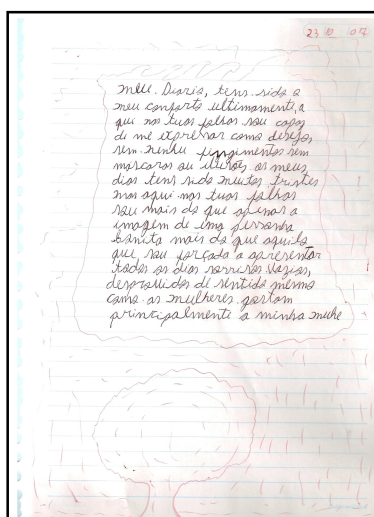 23 10 07
meu Diario, tens sido o
meu conforto ultimamente, a
qui nas tuas folhas sou capas
de me expressar como desejo,
sem nenhu fingimentos sem
mascaras ou ilusões, os meus
dias tens sido muitos tristes
mas aqui nas tuas folhas
sou mais do que apenas a
imagem de uma pessoa
bonita mais do que aquilo
que sou forçada a apresentar
todos os dias sorrisos vazios,
desprovidos de sentido mesmo
como as mulheres gostam
principalmente a minha mulhe